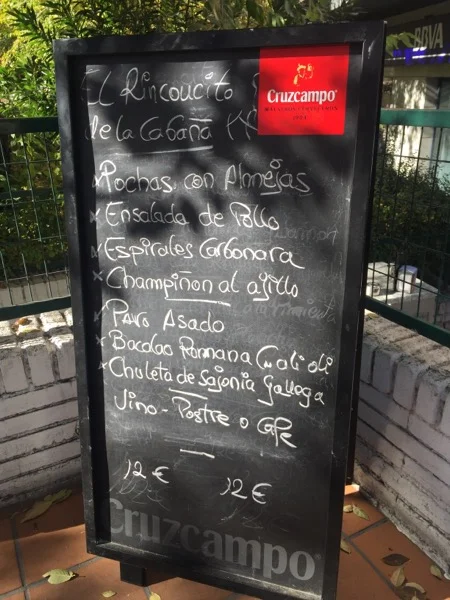 El Rinconcito
de la Cabaña
Cruzcampo®
BBVA
x Pochas con Almejas
x Ensalada de Pollo
x Espirales Carbonara
x Champiñon al ajillo
x Pavo Asado
x Bacalao Romana C/ ali oli
x Chuleta de Sajonia Gallega
Vino - Postre o Cafe
12 € 12 €
Cruzcampo®